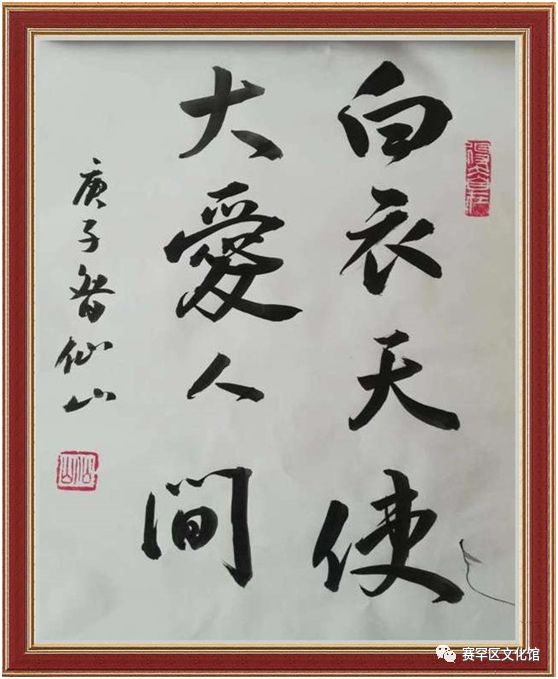 白衣天使
大愛人间
庚子智仙山
赛罕区文化馆